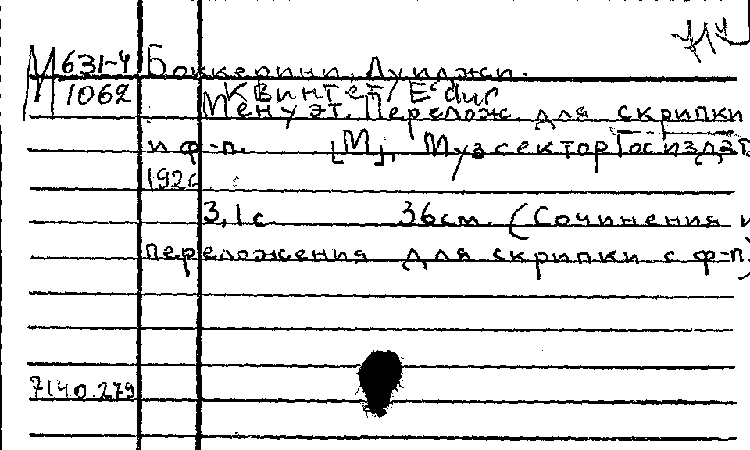 М 631-4 Боккерини, Луиджи.
1062 Квинтет, E-dur
Менуэт. Перелож. для скрипки
и ф-п. [М], Музсектор Госиздат
192
3,1 с 36см. (Сочинения и
переложения для скрипки с ф-п)
7140.279